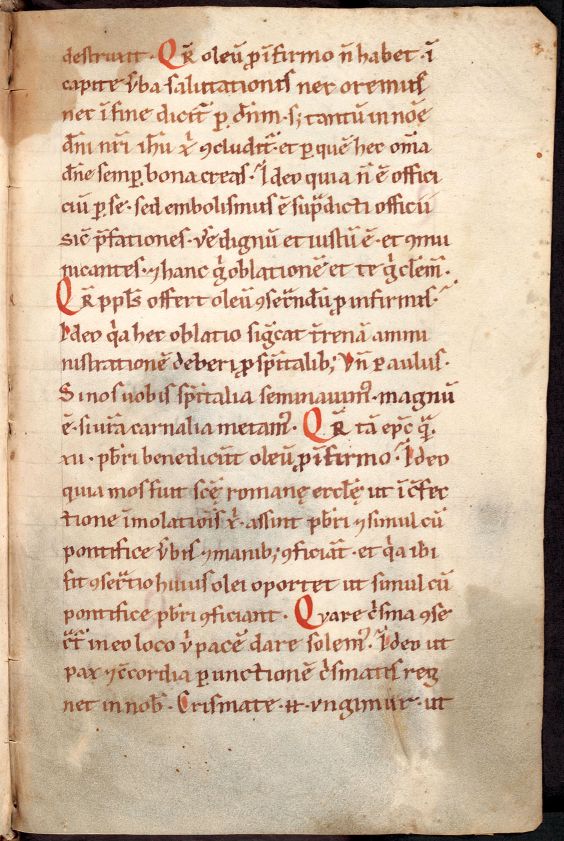 destruxit · Qr̄ oleū ꝓ īfirmo n̄ habet · ī
capite ū̄ba salutationis nec oremus
nec ī fine dicit᷑ ꝑ dn̄m · s; tantū in noē
dn̄i nr̄i ihū xp̄i ꝯcludit᷑ · et ꝑ quē hec om̄a
dn̄e semꝑ bona creas · Ideo quia n̄ ē offici
ciū ꝑ se · sed embolismus ē sup̄dicti officii
sic̄ p̄fationes · ve dignū et iustū ē · et ꝯmu
nicantes · ⁊ hanc g̊ oblationē et te g̊ clem̄ ·
Qr̄ ppl̄s offert oleū ꝯsecr̄ndū ꝓ infirmis ·
Ideo q̄a hec oblatio siḡcat t̄renā ammi
nistrationē deberi ꝓ sp̄italib; Vn̄ paulus ·
Si nos uobis sp̄italia seminauim᷒ · magnū
ē · si ur̄a carnalia metam᷒ · Qr̄ tā ep̄c q̄
xii · p̄bri benedicūt oleū ꝓ īfirmo · Ideo
quia mos fuit scę̄ romanę eccl̄ę ut ī c̄fec
tione īmolatiōis xp̄i · assint p̄bri ⁊ simul cū
pontifice ū̄bis ⁊ manib; ꝯficiāt · et q̄a ibi
fit ꝯsecr̄tio huius olei oportet ut simul cū
pontifice p̄bri ꝯficiant · Quare c̄sma ꝯse
cr̄t̄ in eo loco ū̄ pacē dare solem᷒ · Ideo ut
pax ⁊ ꝯcordia ꝑ unctionē c̄smatis reg
net in nob̄ · Crismate · n̄ · ungimur · ut